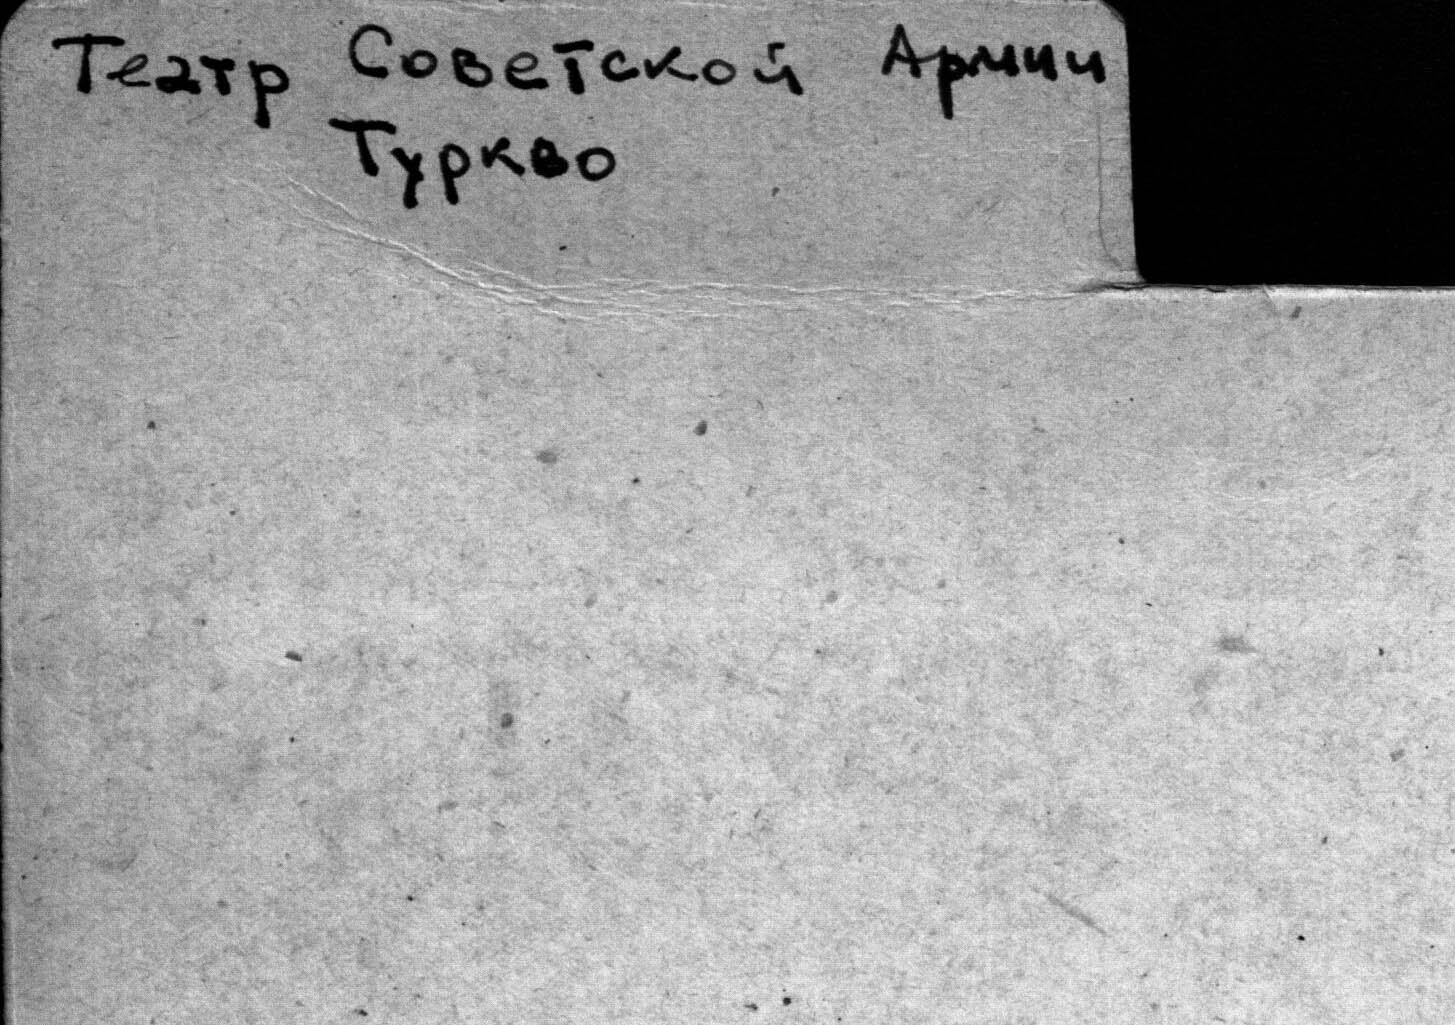 Театр Советской Армии
Туркво